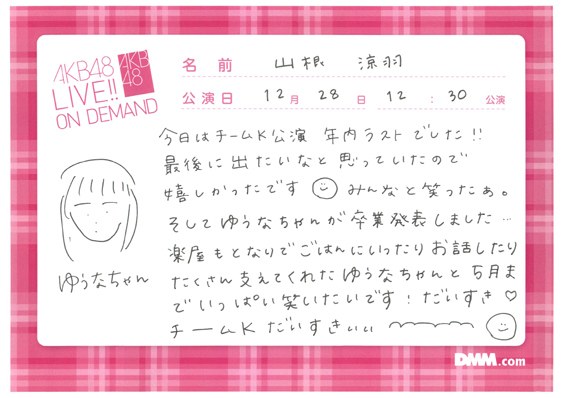 AKB48
LIVE!!
ON DEMAND
AKB
48
名前 山根 涼羽
公演日 12月 28日 12:30 公演
今日はチームK公演 年内ラストでした!!
最後に出たいなと思っていたので
嬉しかったです みんなと笑ったぁ。
そしてゆうなちゃんが卒業発表しました…
楽屋もとなりでごはんにいったりお話したり
たくさん支えてくれたゆうなちゃんと5月ま
でいっぱい笑いたいです!だいすき♡
チームKだいすきぃぃ
ゆうなちゃん
DMM.com